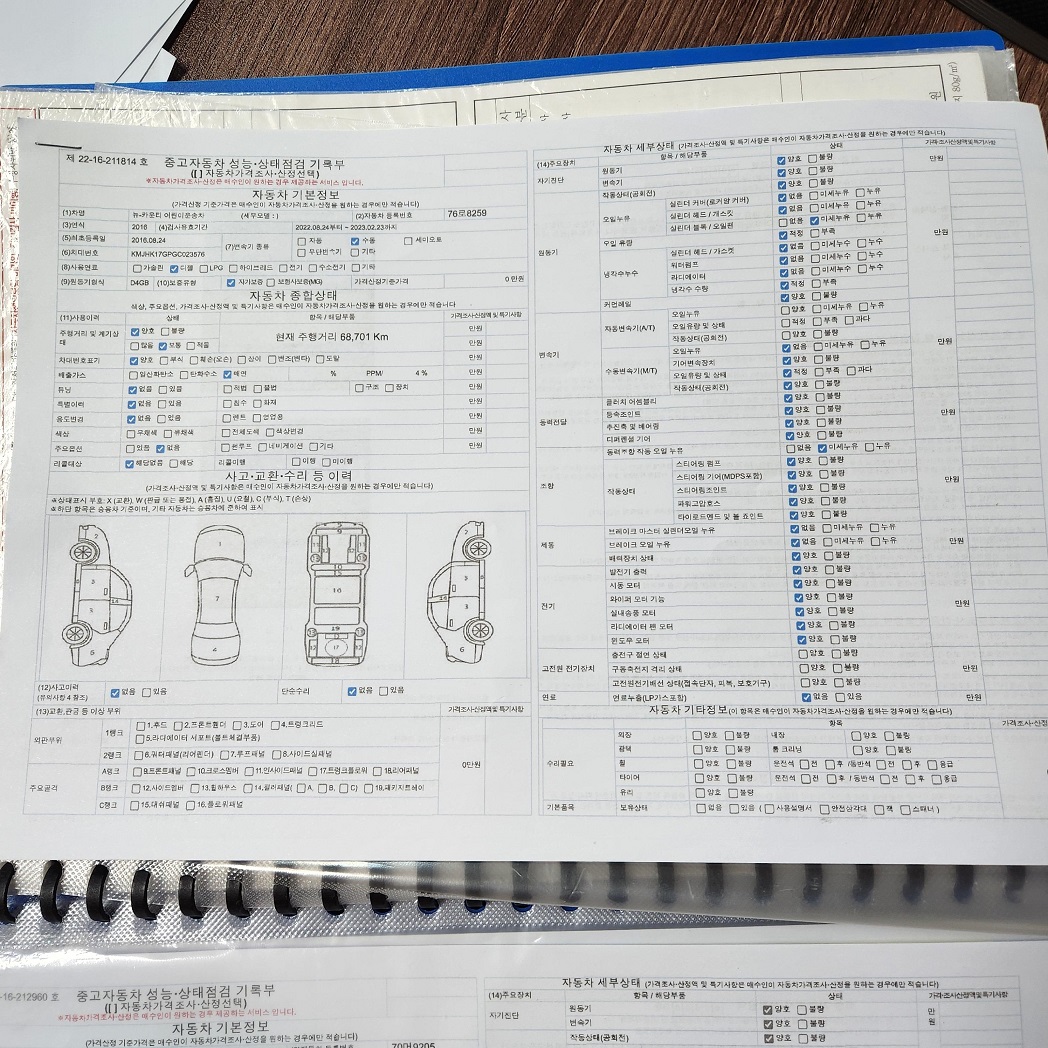 제 22-16-211814 호
중고자동차 성능·상태점검 기록부
([ ] 자동차가격조사·산정선택)
※자동차가격조사·산정은 매수인이 원하는 경우 제공하는 서비스 입니다.
자동차 기본정보
(가격산정 기준가격은 매수인이 자동차가격조사·산정을 원하는 경우에만 적습니다)
(1)차명 뉴-카운티 어린이운송차 (세부모델 : ) (2)자동차 등록번호 76로8259
(3)연식 2016 (4)검사유효기간 2022.08.24부터 ~ 2023.02.23까지
(5)최초등록일 2016.08.24 (7)변속기 종류 자동 수동 세미오토
(6)차대번호 KMJHK17GPGC023576 무단변속기 기타
(8)사용연료 가솔린 디젤 LPG 하이브리드 전기 수소전기 기타
(9)원동기형식 D4GB (10)보증유형 자가보증 보험사보증(MG) 가격산정기준가격 0 만원
자동차 종합상태
색상, 주요옵션, 가격조사·산정액 및 특기사항은 매수인이 자동차가격조사·산정을 원하는 경우에만 적습니다
(11)사용이력 상태 항목 / 해당부품 가격조사·산정액 및 특기사항
주행거리 및 계기상태 양호 불량 현재 주행거리 68,701 Km 만원
많음 보통 적음 만원
차대번호표기 양호 부식 훼손(오손) 상이 변조(변타) 도말 만원
배출가스 일산화탄소 탄화수소 매연 % PPM/ 4 % 만원
튜닝 없음 있음 적법 불법 구조 장치 만원
특별이력 없음 있음 침수 화재 만원
용도변경 없음 있음 렌트 영업용 만원
색상 무채색 유채색 전체도색 색상변경 만원
주요옵션 있음 없음 썬루프 네비게이션 기타 만원
리콜대상 해당없음 해당 리콜이행 이행 미이행
사고·교환·수리 등 이력
(가격조사·산정액 및 특기사항은 매수인이 자동차가격조사·산정을 원하는 경우에만 적습니다)
※상태표시 부호: X (교환), W (판금 또는 용접), A (흠집), U (요철), C (부식), T (손상)
※하단 항목은 승용차 기준이며, 기타 자동차는 승용차에 준하여 표시
(12)사고이력 (유의사항 4 참조) 없음 있음 단순수리 없음 있음
(13)교환,판금 등 이상 부위 가격조사·산정액 및 특기사항
외판부위 1랭크 1.후드 2.프론트휀더 3.도어 4.트렁크리드
5.라디에이터 서포트(볼트체결부품)
2랭크 6.쿼터패널(리어펜더) 7.루프패널 8.사이드실패널
0만원
주요골격 A랭크 9.프론트패널 10.크로스멤버 11.인사이드패널 17.트렁크플로어 18.리어패널
B랭크 12.사이드멤버 13.휠하우스 14.필러패널( A, B, C) 19.패키지트레이
C랭크 15.대쉬패널 16.플로어패널
자동차 세부상태 (가격조사·산정액 및 특기사항은 매수인이 자동차가격조사·산정을 원하는 경우에만 적습니다)
(14)주요장치 항목 / 해당부품 상태 가격조사·산정액및특기사항
자기진단 원동기 양호 불량 만원
변속기 양호 불량
원동기 작동상태(공회전) 양호 불량 만원
오일누유 실린더 커버(로커암 커버) 없음 미세누유 누유
실린더 헤드 / 개스킷 없음 미세누유 누유
실린더 블록 / 오일팬 없음 미세누유 누유
오일 유량 적정 부족
냉각수누수 실린더 헤드 / 가스켓 없음 미세누수 누수
워터펌프 없음 미세누수 누수
라디에이터 없음 미세누수 누수
냉각수 수량 적정 부족
커먼레일 양호 불량
변속기 자동변속기(A/T) 오일누유 없음 미세누유 누유 만원
오일유량 및 상태 적정 부족 과다
작동상태(공회전) 양호 불량
수동변속기(M/T) 오일누유 없음 미세누유 누유
기어변속장치 양호 불량
오일유량 및 상태 적정 부족 과다
작동상태(공회전) 양호 불량
동력전달 클러치 어셈블리 양호 불량 만원
등속조인트 양호 불량
추진축 및 베어링 양호 불량
디퍼렌셜 기어 양호 불량
조향 동력조향 작동 오일 누유 없음 미세누유 누유 만원
작동상태 스티어링 펌프 양호 불량
스티어링 기어(MDPS포함) 양호 불량
스티어링조인트 양호 불량
파워고압호스 양호 불량
타이로드엔드 및 볼 죠인트 양호 불량
제동 브레이크 마스터 실린더오일 누유 없음 미세누유 누유 만원
브레이크 오일 누유 없음 미세누유 누유
배력장치 상태 양호 불량
전기 발전기 출력 양호 불량 만원
시동 모터 양호 불량
와이퍼 모터 기능 양호 불량
실내송풍 모터 양호 불량
라디에이터 팬 모터 양호 불량
윈도우 모터 양호 불량
고전원 전기장치 충전구 절연 상태 양호 불량 만원
구동축전지 격리 상태 양호 불량
고전원전기배선 상태(접속단자, 피복, 보호기구) 양호 불량
연료 연료누출(LP가스포함) 없음 있음 만원
자동차 기타정보(이 항목은 매수인이 자동차가격조사·산정을 원하는 경우에만 적습니다)
항목 가격조사·산정
수리필요 외장 양호 불량 내장 양호 불량
광택 양호 불량 룸 크리닝 양호 불량
휠 양호 불량 운전석 전 후 /동반석 전 후 응급
타이어 양호 불량 운전석 전 후 /동반석 전 후 응급
유리 양호 불량
기본품목 보유상태 없음 있음 ( 사용설명서 안전삼각대 잭 스패너 )
-16-212960 호
중고자동차 성능·상태점검 기록부
([ ] 자동차가격조사·산정선택)
※자동차가격조사·산정은 매수인이 원하는 경우 제공하는 서비스 입니다.
자동차 기본정보
(가격산정 기준가격은 매수인이 자동차가격조사·산정을 원하는 경우에만 적습니다)
자동차 세부상태 (가격조사·산정액 및 특기사항은 매수인이 자동차가격조사·산정을 원하는 경우에만 적습니다)
(14)주요장치 항목 / 해당부품 상태 가격조사·산정액및특기사항
자기진단 원동기 양호 불량 만원
변속기 양호 불량
작동상태(공회전) 양호 불량